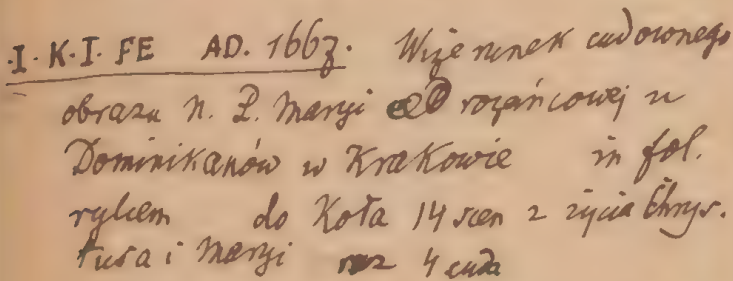 ·I·K·I·FE AD. 1667. Wizerunek cudownego
obrazu N. P. Maryi rozańcowej u
Dominikanów w Krakowie in fol.
rylcem do Koła 14 scen z życia Chrys-
tusa i Maryi 4 cuda